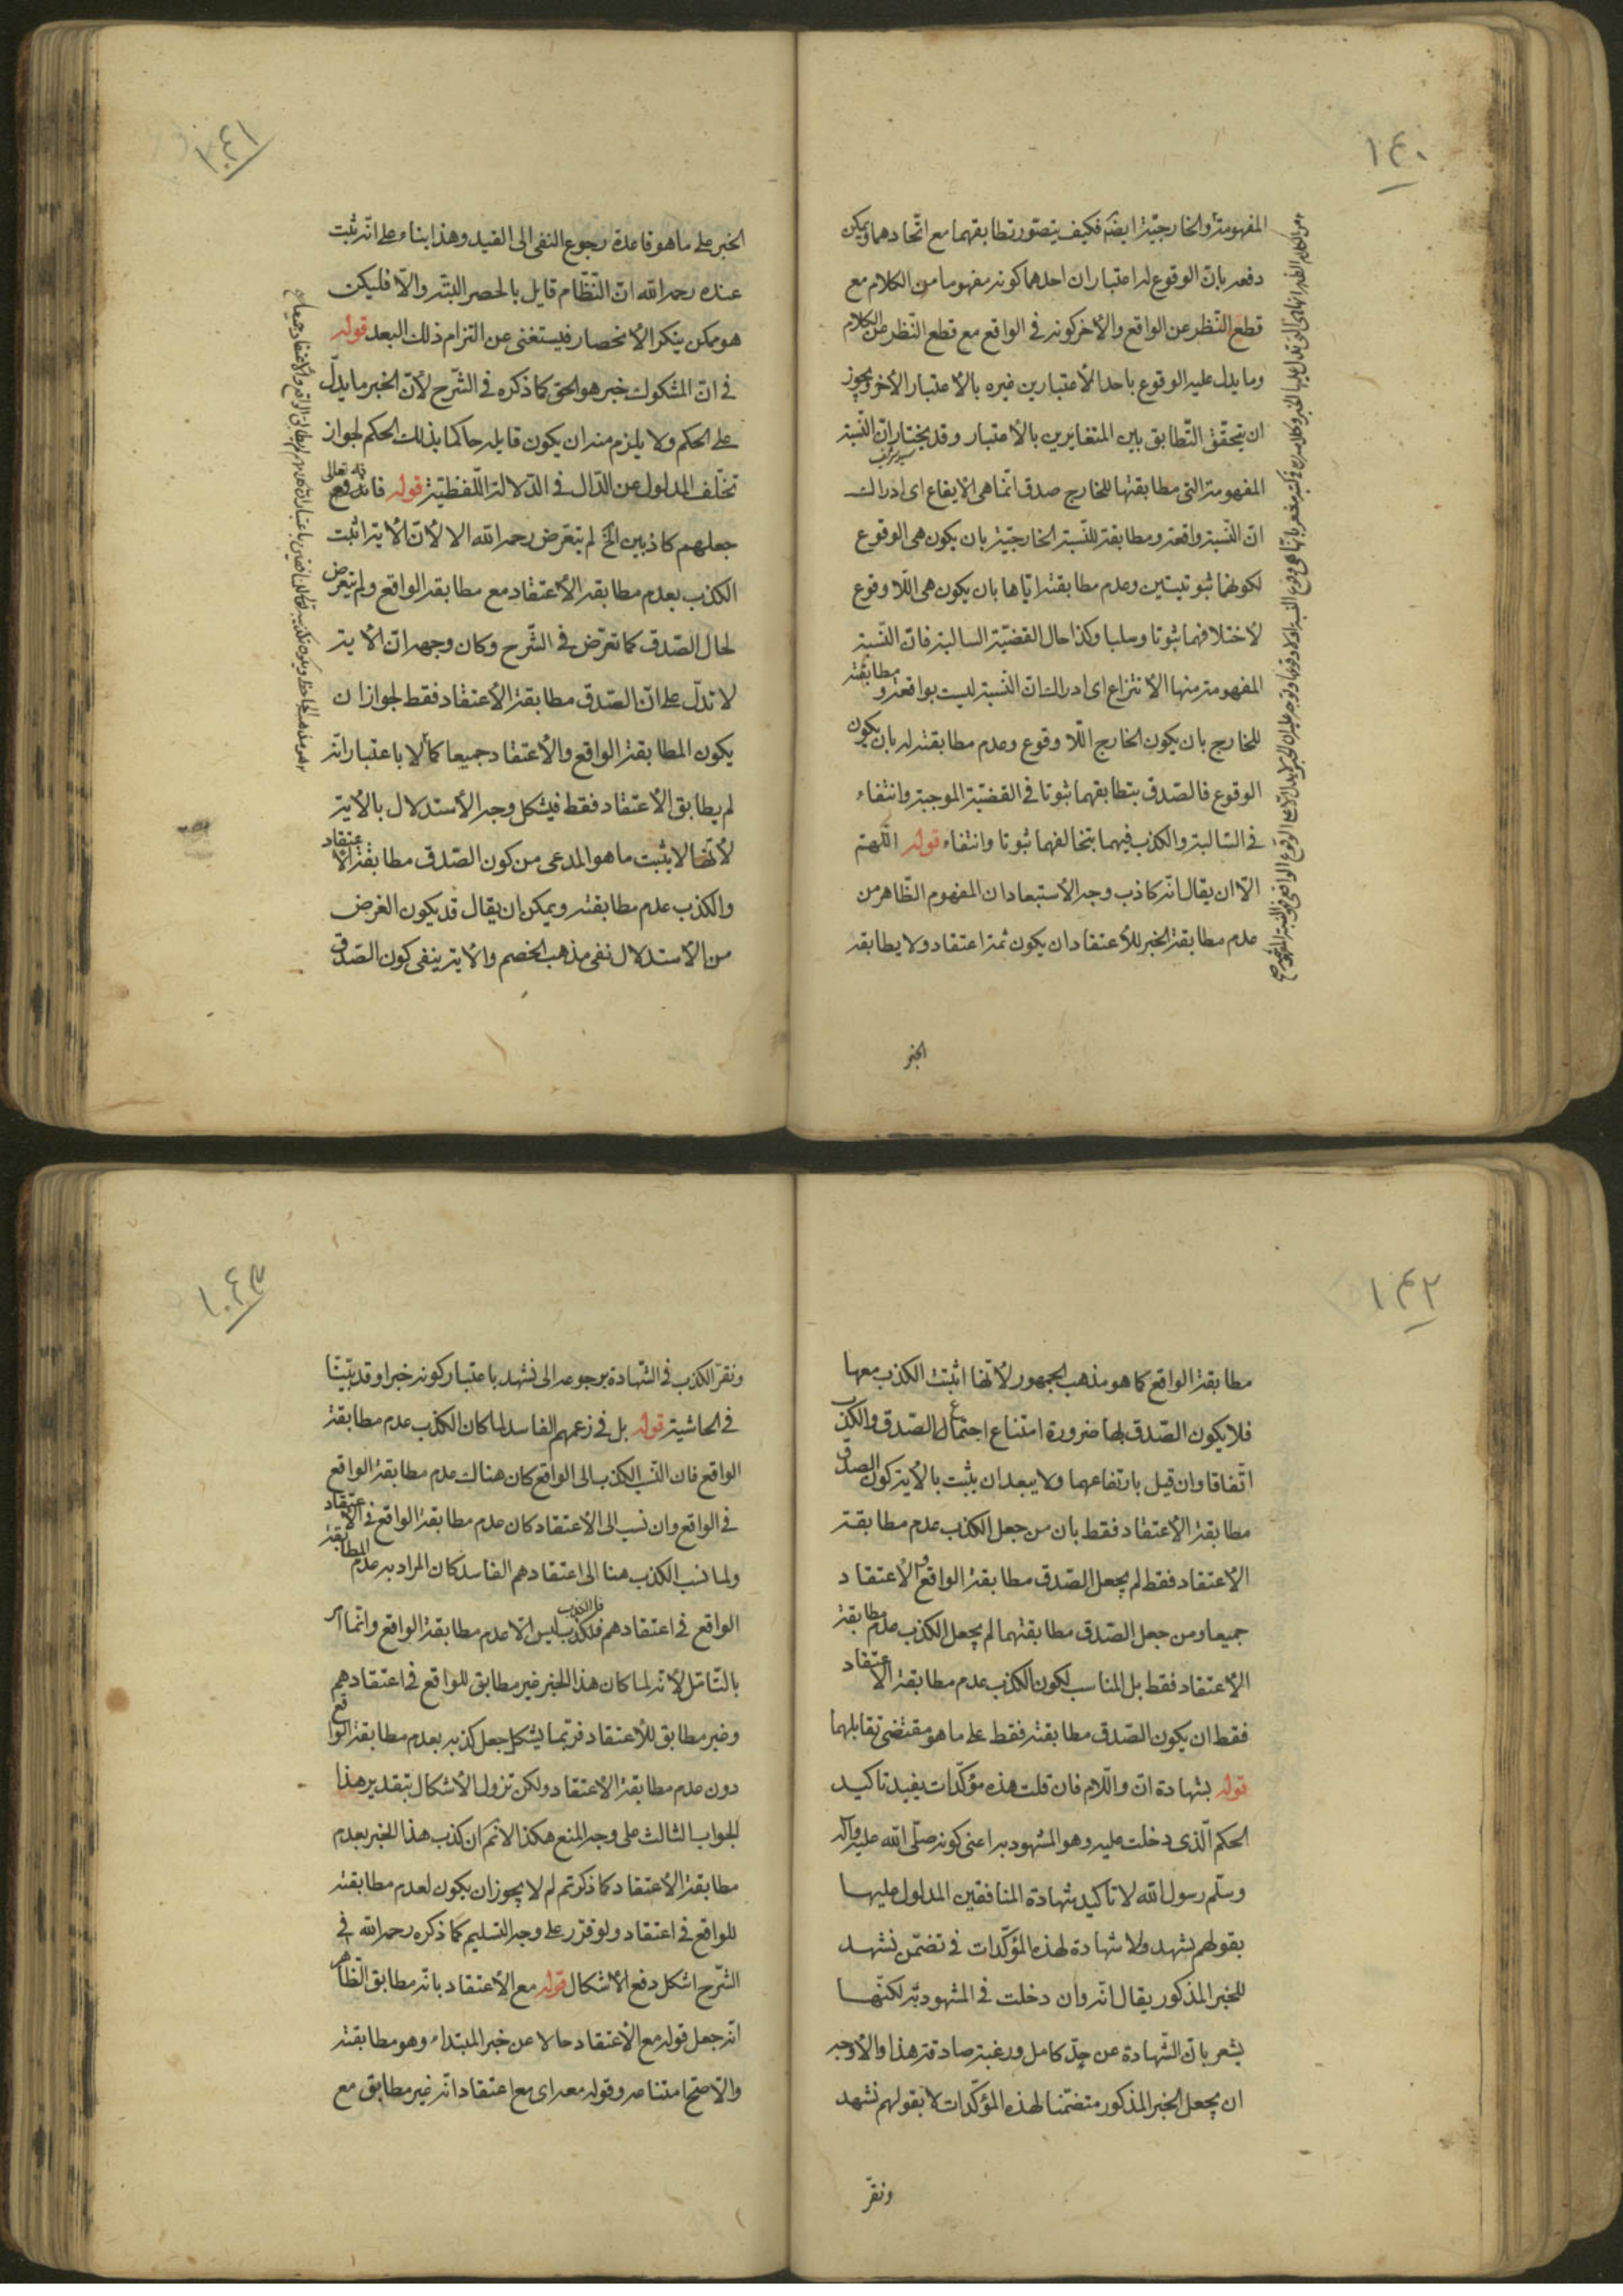 ١٤٠
المفهومة والخارجيّة ايضه فكيف يتصوّر تطابقهما مع اتّحادهما ويمكن
دفعه بانّ الوقوع له اعتباران احدهما كونه مفهوما من الكلام مع
قطع النّظر عن الواقع والأخر كونه في الواقع مع قطع النّظر عن الكلام
وما يدل عليه الوقوع باحد الأعتبارين غيره بالأعتبار الأخر ويجوز
ان يتحقّق التّطابق بين المتغايرين بالأعتبار وقد يختار انّ النّسبة
المفهومة التى مطابقتها للخارج صدق انّما هى الايقاع اى ادراك
انّ النّسبة واقعة ومطابقة للنّسبة الخارجيّة بان يكون هى الوقوع
لكونهما ثبوتيتين وعدم مطابقته ايّاها بان يكون هى اللّا وقوع
لأختلافهما ثبوتا وسلبا وكذا حال القضيّة السالبة فانّ النّسبة
المفهومة منها الأنتزاع اى ادراك انّ النّسبة ليست بواقعة ومطابقته
للخارج بان يكون الخارج اللّا وقوع وعدم مطابقته له بان يكون
الوقوع فالصّدق بتطابقهما ثبوتا في القضيّة الموجبة وانتفاء
في السّالبة والكذب فيهما بتخالفهما ثبوتا وانتفاء قوله اللّهمّ
الّا ان يقال انّه كاذب وجه الأستبعاد ان المفهوم الظّاهر من
عدم مطابقة الخبر للأعتقاد ان يكون ثمة اعتقاد ولا يطابقه
الخبر
١٤١
الخبر على ما هو قاعدة رجوع النفى الى القيد وهذا بناء على انّه ثبت
عنده رحمه الله انّ النّظّام قايل بالحصر البتّه والّا فليكن
هو ممكن ينكر الأنحصار فيستغنى عن التزام ذلك البعد قوله
في انّ المشكوك خبر هو الحق كما ذكره في الشّرح لأنّ الخبر ما يدلّ
على الحكم ولا يلزم منه ان يكون قايله حاكما بذلك الحكم لجواز
تخلّف المدلول عن الدّال في الدّلالة اللّفظيّة قوله فانّه تعالى
جعلهم كاذبين الخ لم يتعرّض رحمه الله الا لأنّ الأية اثبت
الكذب بعدم مطابقة الأعتقاد مع مطابقة الواقع ولم يتعرض
لحال الصّدق كما تعرّض في الشّرح وكان وجهه انّ الأية
لا تدلّ على انّ الصّدق مطابقة الأعتقاد فقط لجواز ان
يكون المطابقة الواقع والأعتقاد جميعا كما لا باعتبار انّه
لم يطابق الأعتقاد فقط فيشكل وجه الأستدلال بالأية
لأنّها لا يثبت ما هو المدعى من كون الصّدق مطابقة الأعتقاد
والكذب عدم مطابقته ويمكن ان يقال قد يكون الغرض
من الأستدلال نفى مذهب الخصم والأية ينفى كون الصّدق
١٤٢
مطابقة الواقع كما هو مذهب الجمهور لأنّها اثبتت الكذب معها
فلا يكون الصّدق بها ضرورة امتناع اجتماع الصّدق والكذب
اتّفاقا وان قيل بارتفاعهما ولا يبعد ان يثبت بالأية كون الصدق
مطابقة الأعتقاد فقط بان من جعل الكذب عدم مطابقة
الأعتقاد فقط لم يجعل الصّدق مطابقة الواقع والأعتقاد
جميعا ومن جعل الصّدق مطابقتهما لم يجعل الكذب عدم مطابقة
الأعتقاد فقط بل المناسب لكون الكذب عدم مطابقة الأعتقاد
فقط ان يكون الصّدق مطابقته فقط على ما هو مقتضى تقابلهما
قوله بشهادة انّ والّلام فان قلت هذه مؤكّدات يفيد تاكيد
الحكم الّذى دخلت عليه وهو المشهود به اعنى كونه صلّى الله عليه وآله
وسلّم رسول الله لا تاكيد شهادة المنافقين المدلول عليها
بقولهم نشهد ولا شهادة لهذه المؤكّدات في تضمّن نشهد
للخبر المذكور يقال انّه وان دخلت في المشهود به لكنّها
يشعر بانّ الشّهادة عن جدّ كامل ورغبة صادقة هذا والأوجه
ان يجعل الخبر المذكور متضمّنا لهذه المؤكّدات لا بقولهم نشهد
ونقرّ
١٤٣
ونقرّ الكذب في الشّهادة برجوعه الى نشهد باعتبار كونه خبرا وقد بيّنّا
في الحاشية قوله بل في زعمهم الفاسد لما كان الكذب عدم مطابقة
الواقع فان النّسب الكذب الى الواقع كان هناك عدم مطابقة الواقع
في الواقع وان نسب الى الأعتقاد كان عدم مطابقة الواقع في الأعتقاد
ولما نسب الكذب هنا الى اعتقادهم الفاسد كان المراد به عدم المطابقة
الواقع في اعتقادهم فالكذب ليس الّا عدم مطابقة الواقع وانّما امر
بالتّامّل لأنّه لما كان هذا الخبر غير مطابق للواقع في اعتقادهم
وغير مطابق للأعتقاد فربّما يشكل جعل كذبه بعدم مطابقة الواقع
دون عدم مطابقة الأعتقاد ولكن تزول الأشكال بتقدير هذا
الجواب الثالث على وجه المنع هكذا لانم ان كذب هذا الخبر بعدم
مطابقة الأعتقاد كما ذكرتم لم لا يجوز ان يكون لعدم مطابقته
للواقع في اعتقاد ولو قرّر على وجه التسليم كما ذكره رحمه الله في
الشّرح اشكل دفع الأشكال قوله مع الأعتقاد بانّه مطابق الظّاهر
انّه جعل قوله مع الأعتقاد حالا عن خبر المبتداء وهو مطابقته
والّا صحّ امتناعه وقوله معه اى مع اعتقاد انّه غير مطابق مع